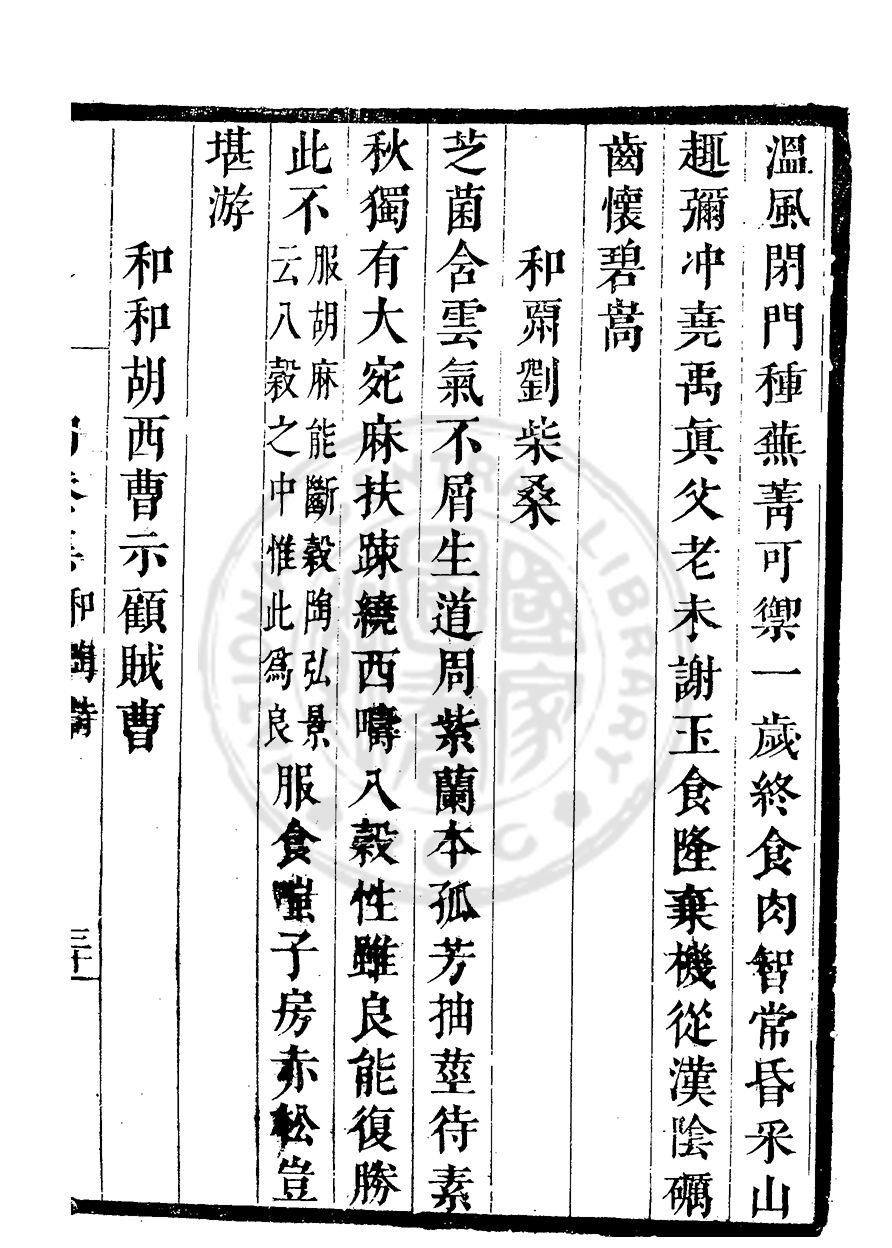 溫風閉門種蕪菁可禦一歲終食肉智常昏采山
趣彌冲堯禹眞父老未謝玉食隆棄機從漢陰礪
齒懷碧嵩
和酬劉柴桑
芝菌含雲氣不屑生道周紫蘭本孤芳抽莖待素
秋獨有大宛麻扶踈繞西疇八穀性雖良能復勝
此不服胡麻能斷穀陶弘景云八穀之中惟此爲良服食嗤子房赤松豈
堪游
和和胡西曹示顧賊曹
和陶詩
三十